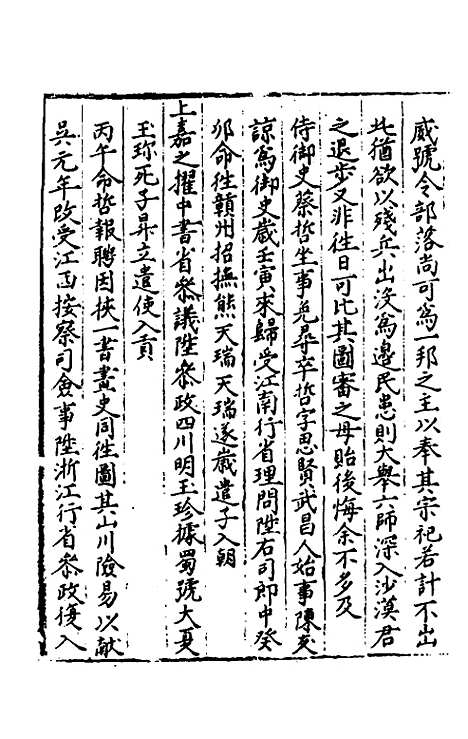 威號令部落尚可爲一邦之主以奉其宗祀若計不出
此猶欲以殘兵出沒爲邊民患則大舉六師深入沙漠君
之退步又非徃日可比其圖審之毋貽後悔余不多及
侍御史蔡哲坐事免尋卒哲字思賢武昌人始事陳友
諒爲御史歲壬寅來歸受江南行省理問陞右司郎中癸
卯命徃贛州招撫熊天瑞天瑞遂歲遣子入朝
上嘉之擢中書省叅議陞叅政四川明玉珍據蜀號大夏
玉珍死子昇立遣使入貢
丙午命哲報聘因挾一書畫史同徃圖其山川險易以獻
吳元年改受江西按察司僉事陞浙江行省叅政復入